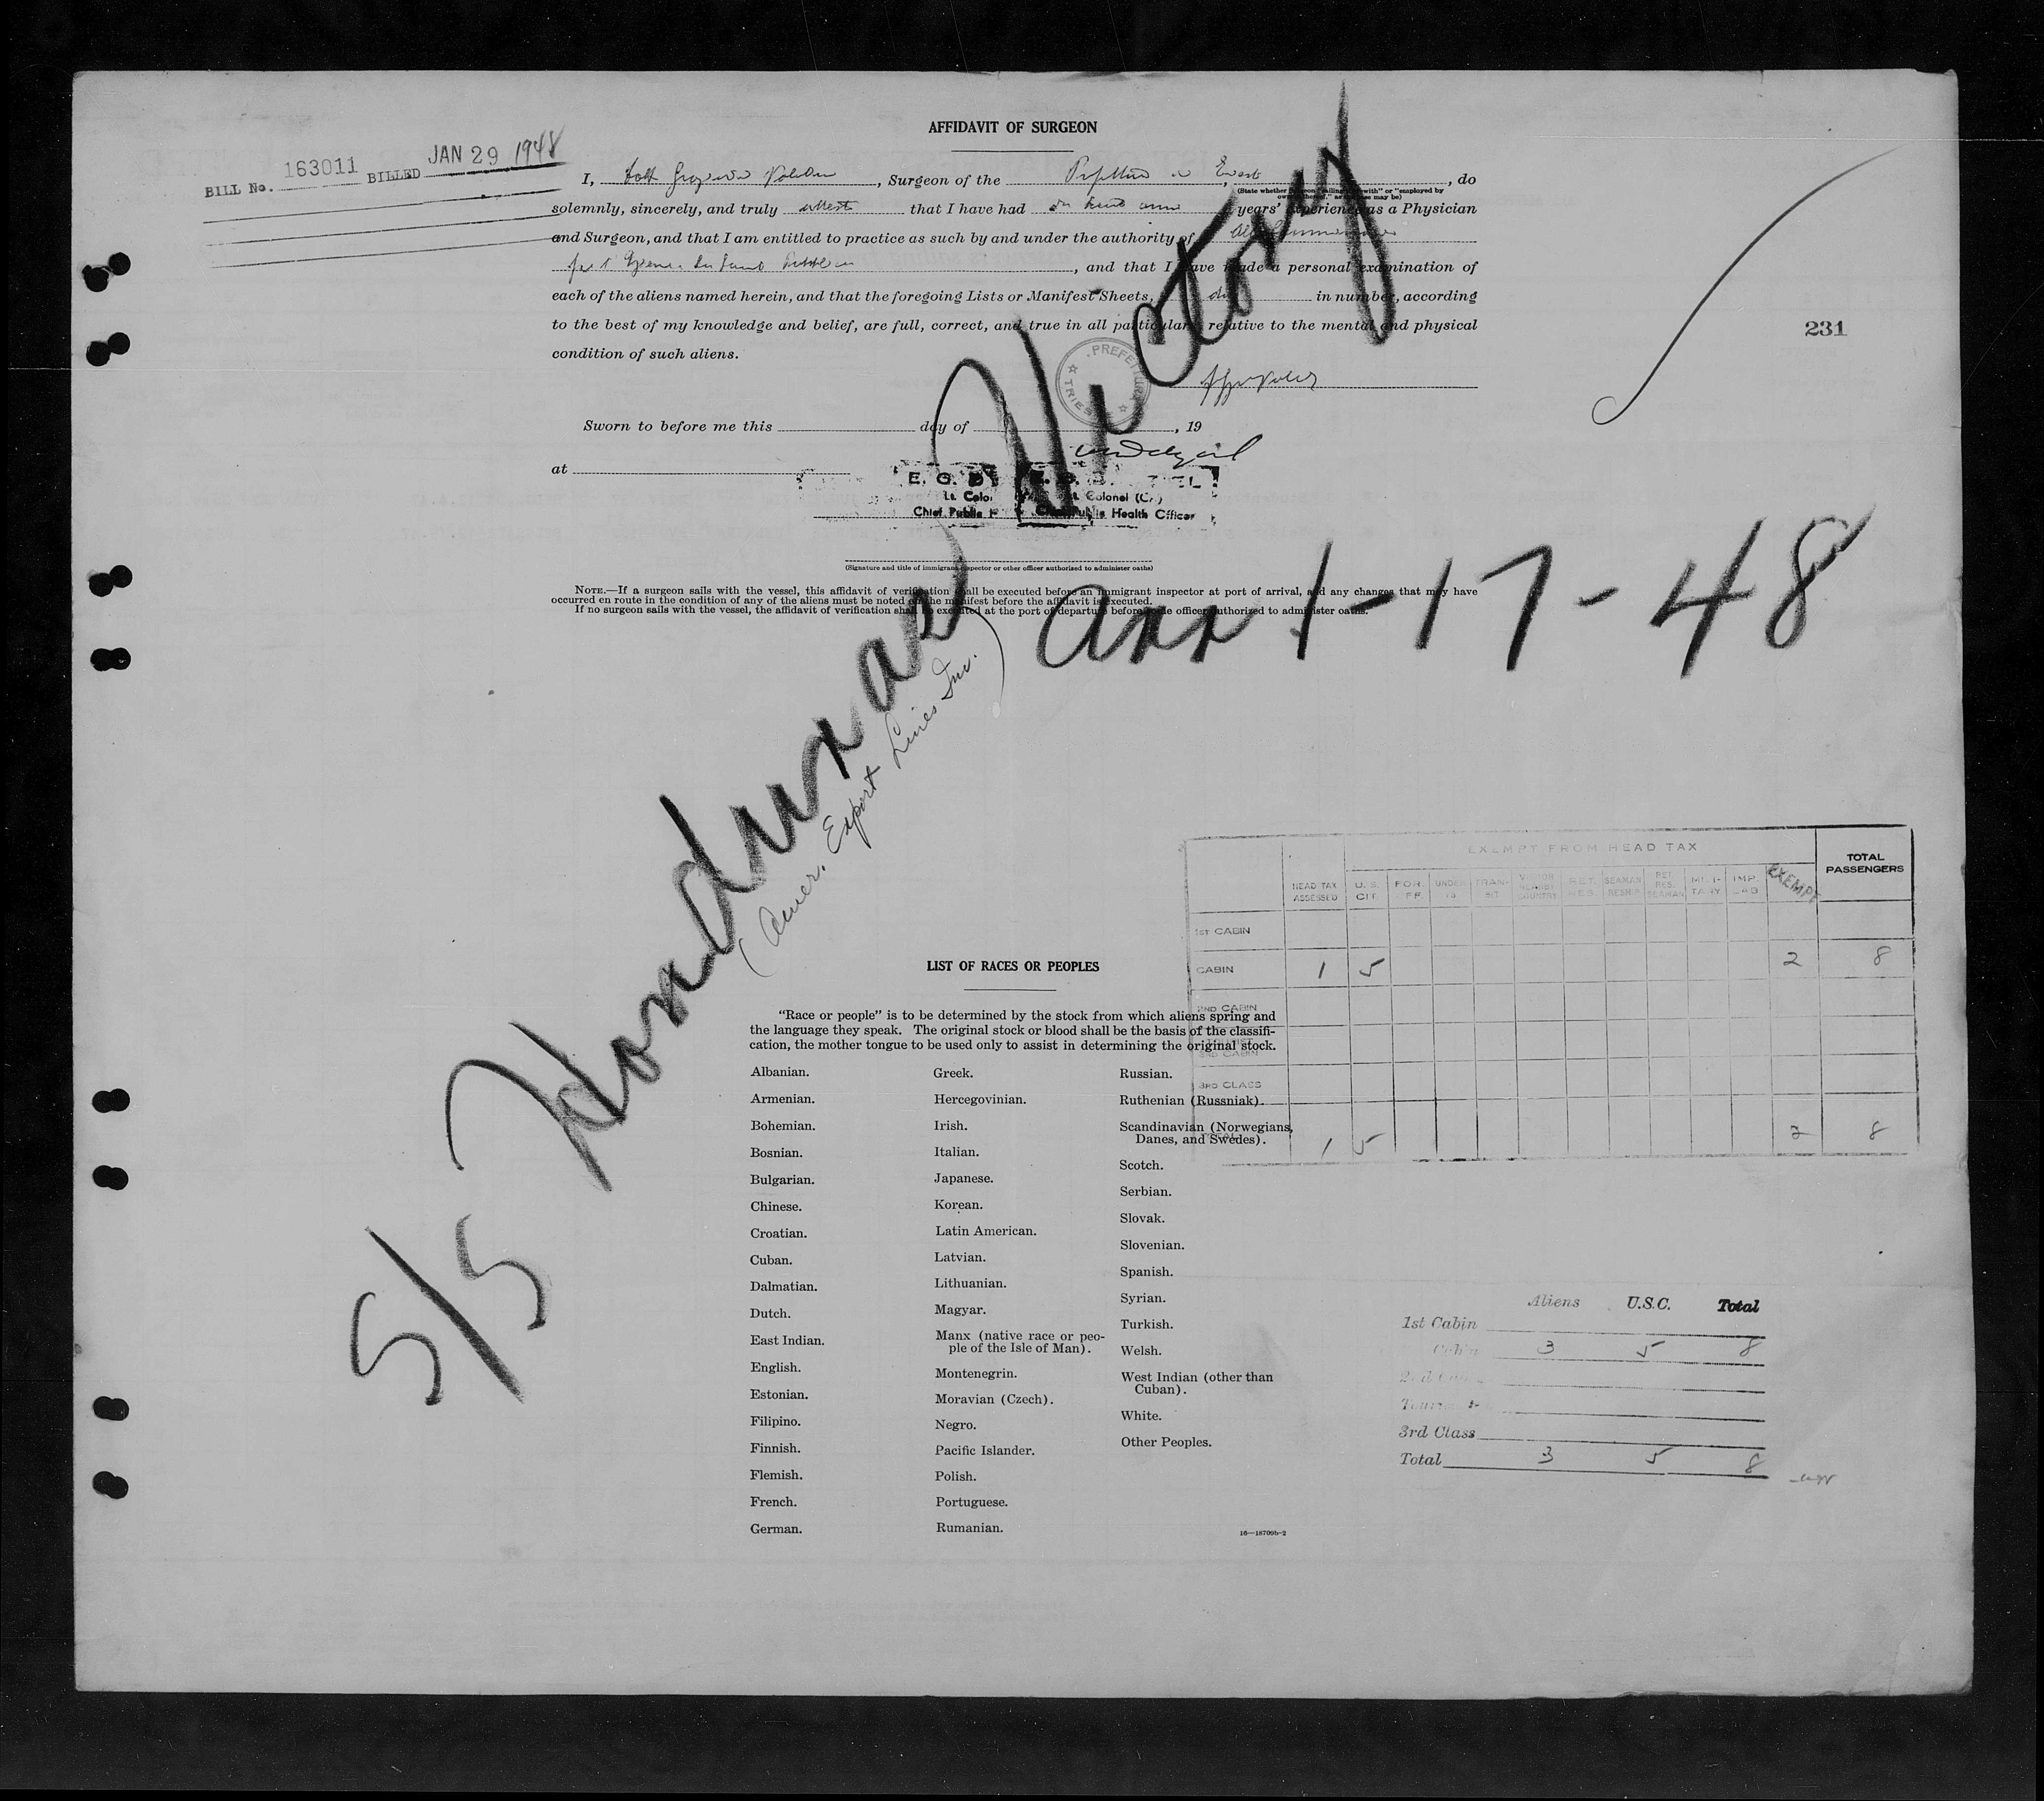 AFFIDAVIT OF SURGEON
BILL No. 163011 BILLED JAN 29 1948
I, , Surgeon of the , do
(State whether "or "employed by
solemnly, sincerely, and truly attest that I have had years' experience as a Physician
and Surgeon, and that I am entitled to practice as such by and under the authority of
, and that I have made a personal examination of
each of the aliens named herein, and that the foregoing Lists or Manifest Sheets, in number, according
to the best of my knowledge and belief, are full, correct, and true in all particulars relative to the mental and physical
condition of such aliens.
231
PREFETTURA
TRIES
Sworn to before me this day of , 19
at
E. G.
Lt. Colonel (C.)
Chief Public Health Officer
(Signature and title of immigrant inspector or other officer authorized to administer oaths)
NOTE.—If a surgeon sails with the vessel, this affidavit of verification shall be executed before an immigrant inspector at port of arrival, and any changes that may have
occurred en route in the condition of any of the aliens must be noted on the manifest before the affidavit is executed.
If no surgeon sails with the vessel, the affidavit of verification shall be executed at the port of departure before some officer authorized to administer oaths.
S/S Honduras Victory
(Amer. Export Lines Inc.)
arr 1-17-48
EXEMPT FROM HEAD TAX
HEAD TAX ASSESSED
U. S. CIT
FOR. FF
UNDER 16
TRAN-SIT
RET. RES.
SEAMAN RESHIP
RET. RES. SEAMAN
MILI-TARY
IMP. LAB
EXEMPT
TOTAL PASSENGERS
1ST CABIN
CABIN 1 5 2 8
2ND CABIN
TOURIST 3RD CABIN
3RD CLASS
1 5 2 8
LIST OF RACES OR PEOPLES
"Race or people" is to be determined by the stock from which aliens spring and
the language they speak. The original stock or blood shall be the basis of the classifi-
cation, the mother tongue to be used only to assist in determining the original stock.
Albanian.
Armenian.
Bohemian.
Bosnian.
Bulgarian.
Chinese.
Croatian.
Cuban.
Dalmatian.
Dutch.
East Indian.
English.
Estonian.
Filipino.
Finnish.
Flemish.
French.
German.
Greek.
Hercegovinian.
Irish.
Italian.
Japanese.
Korean.
Latin American.
Latvian.
Lithuanian.
Magyar.
Manx (native race or peo-
ple of the Isle of Man).
Montenegrin.
Moravian (Czech).
Negro.
Pacific Islander.
Polish.
Portuguese.
Rumanian.
Russian.
Ruthenian (Russniak).
Scandinavian (Norwegians,
Danes, and Swedes).
Scotch.
Serbian.
Slovak.
Slovenian.
Spanish.
Syrian.
Turkish.
Welsh.
West Indian (other than
Cuban).
White.
Other Peoples.
16—18709b-2
Aliens U.S.C. Total
1st Cabin
Cabin 3 5 8
3rd Class
Total 3 5 8